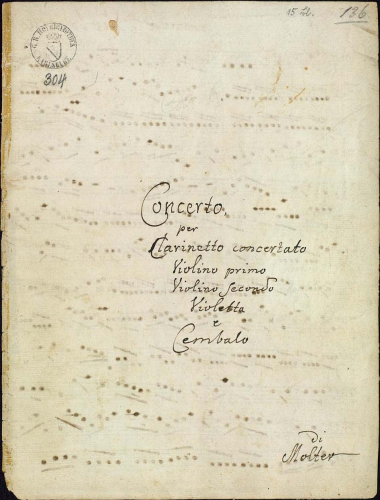 15 Bl.
136
304
Concerto
per
Clarinetto concertato
Violino primo
Violino Secondo
Violetta
e
Cembalo
di
Molter